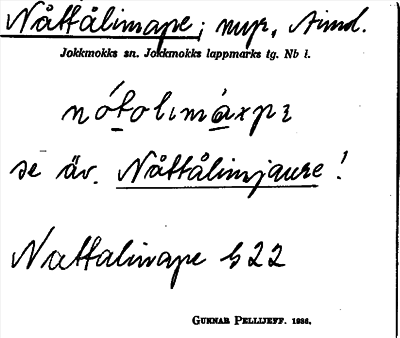 Nåttålimape; myr, Aimd.
Jokkmokks sn. Jokkmokks lappmarks tg. Nb l.
nó̱tolımá̱xpɛ
se äv. Nåttålimjaure!
Nattalinape b 22
GUNNAR PELLIJEFF. 1936.